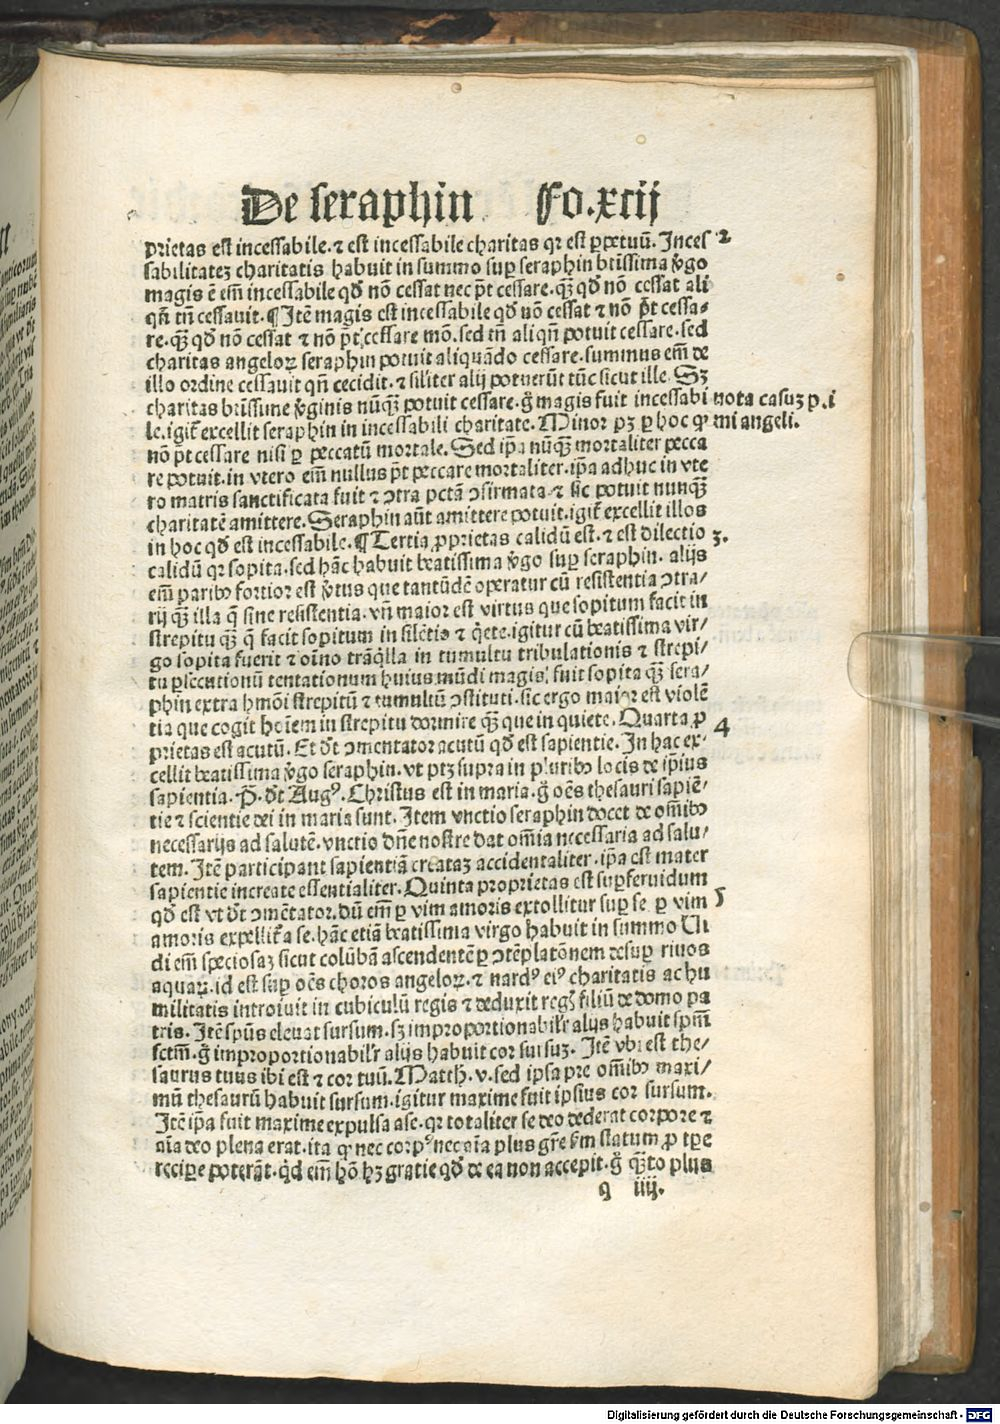 De seraphin Fo.xcij
prietas est incessabile.⁊ est incessabile charitas qꝛ est ꝑpetuū. Inces 2
sabilitateʒ charitatis habuit in summo suꝑ seraphin btissima ꝟgo
magis ē em̄ incessabile qd̄ nō cessat nec pt̄ cessare.qꝫ qd̄ nō cessat ali
qn̄ tn̄ cessauit.¶Itē magis est incessabile qd̄ nō cessat ⁊ nō pt̄ cessa-
re.qꝫ qd̄ nō cessat ⁊ nō pt̄ cessare mō.sed tn̄ aliqn̄ potuit cessare.sed
charitas angeloꝝ seraphin potuit aliquādo cessare.summus em̄ de
illo ordine cessauit qn̄ cecidit.⁊ siliter alij potuerūt tūc sicut ille. Sʒ
charitas btissime ꝟginis nūqꝫ potuit cessare.g̊ magis fuit incessabi nota casuʒ p.i
le.igit᷑ excellit seraphin in incessabili charitate. Minor pʒ ꝑ hoc ꝙ mi angeli.
nō pt̄ cessare nisi ꝑ peccatū mortale. Sed ip̄a nūqꝫ mortaliter pecca
re potuit.in vtero em̄ nullus pt̄ peccare mortaliter.ip̄a adhuc in vte
ro matris sanctificata fuit ⁊ ↄtra pctā ↄfirmata ⁊ sic potuit nunqꝫ
charitatē amittere. Seraphin aūt amittere potuit.igit᷑ excellit illos
in hoc qd̄ est incessabile.¶Tertia ꝓprietas calidū est.⁊ est dilectio 3.
calidū qꝛ sopita.sed hāc habuit beatissima ꝟgo suꝑ seraphin. alijs
em̄ paribꝰ fortior est ꝟtus que tantūdē operatur cū resistentia ↄtra/
rij qꝫ illa q̄ sine resistentia.vn̄ maior est virtus que sopitum facit in
strepitu qꝫ q̄ facit sopitum in silētio ⁊ q̇ete.igitur cū beatissima vir/
go sopita fuerit ⁊ oīno trāq̇lla in tumultu tribulationis ⁊ strepi/
tu ꝑsecutionū tentationum huius mūdi magis fuit sopita qꝫ sera/
phin extra hmōi strepitū ⁊ tumultū ↄstituti.sic ergo maior est violē
tia que cogit hoīem in strepitu dormire qꝫ que in quiete. Quarta ꝓ
prietas est acutū. Et dt̄ ↄmentator acutū qd̄ est sapientie. In hac ex- 4
cellit beatissima ꝟgo seraphin.vt ptʒ supra in pluribꝰ locis de ip̄ius
sapientia. P̄. dt̄ Augꝰ. Christus est in maria.g̊ oēs thesauri sapiē-
tie ⁊ scientie dei in maria sunt. Item vnctio seraphin docet de om̄ibꝰ
necessarijs ad salutē.vnctio dn̄e nostre dat om̄ia necessaria ad salu/
tem. Itē participant sapientiā creataʒ accidentaliter.ip̄a est mater
sapientie increate essentialiter. Quinta proprietas est suꝑferuidum
qd̄ est vt dt̄ ↄmētator.dū em̄ ꝑ vim amoris extollitur suꝑ se ꝑ vim 5
amoris expellit᷑ a se.hāc etiā beatissima virgo habuit in summo Ui
di em̄ speciosaʒ sicut colūbā ascendentē ꝑ ↄtēplatōnem desuꝑ riuos
aquaꝝ.id est suꝑ oēs choros angeloꝝ.⁊ nardꝰ eiꝰ charitatis ac hu
militatis introiuit in cubiculū regis ⁊ deduxit regꝭ filiū de domo pa
tris. Itē sp̄us eleuat sursum.sʒ improportionabilr̄ alijs habuit sp̄m
sctm̄.g̊ improportionabilr̄ alijs habuit cor sursuʒ. Itē vbi est the/
saurus tuus ibi est ⁊ cor tuū. Matth.v.sed ipsa pre om̄ibꝰ maxi/
mū thesaurū habuit sursum.igitur maxime fuit ipsius cor sursum.
Itē ip̄a fuit maxime expulsa a se.qꝛ totaliter se deo dederat corpore ⁊
aīa deo plena erat.ita ꝙ nec corpꝰ nec aīa plus gr̄e ẜm statum ꝓ tꝑe
reciꝑe poterāt.qd̄ em̄ hō hʒ gratie qd̄ de ea non accepit.g̊ qꝫto plus
q iiij.